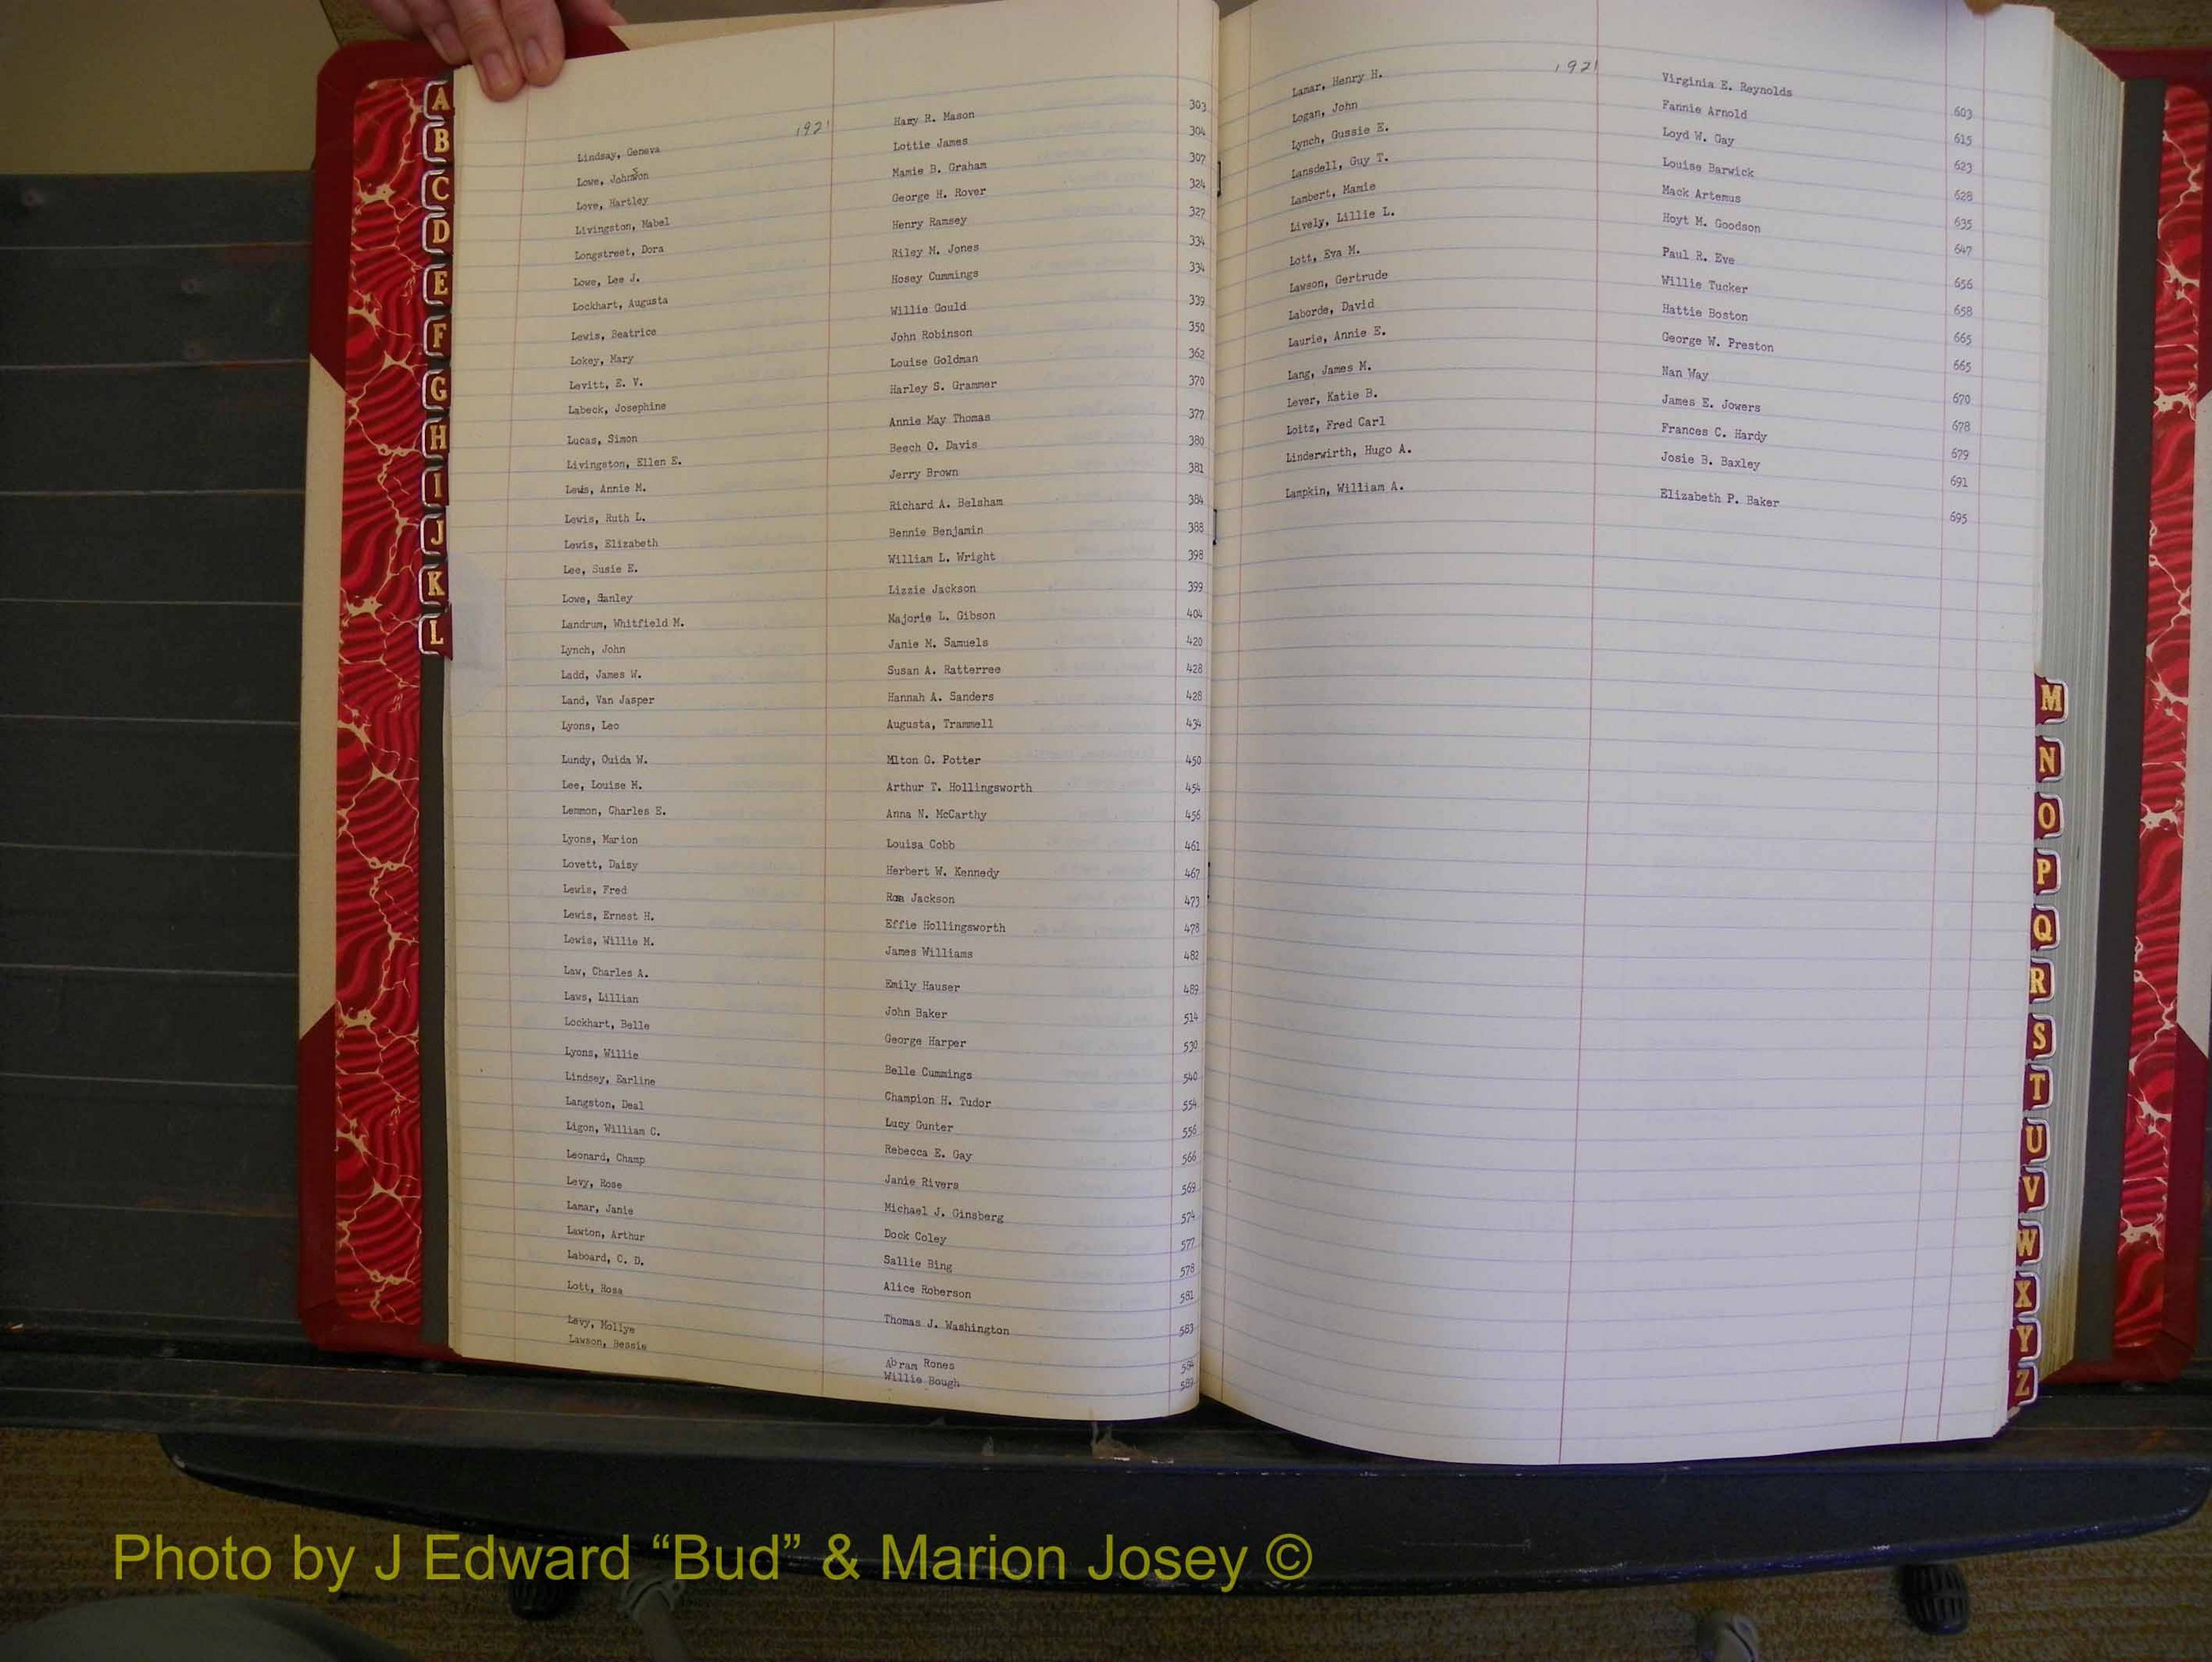 1921
Lindsay, Geneva Harry R. Mason 303
Lowe, Johnson Lottie James 304
Love, Hartley Mamie B. Graham 307
Livingston, Mabel George H. Rover 324
Longstreet, Dora Henry Ramsey 327
Lowe, Lee J. Riley M. Jones 334
Lockhart, Augusta Hosey Cummings 334
Lewis, Beatrice Willie Gould 339
Lokey, Mary John Robinson 350
Levitt, E. V. Louise Goldman 362
Labeck, Josephine Harley S. Grammer 370
Lucas, Simon Annie May Thomas 377
Livingston, Ellen E. Beech O. Davis 380
Lewis, Annie M. Jerry Brown 381
Lewis, Ruth L. Richard A. Belsham 384
Lewis, Elizabeth Bennie Benjamin 388
Lee, Susie E. William L. Wright 398
Lowe, Sanley Lizzie Jackson 399
Landrum, Whitfield M. Majorie L. Gibson 404
Lynch, John Janie M. Samuels 420
Ladd, James W. Susan A. Ratterree 428
Land, Van Jasper Hannah A. Sanders 428
Lyons, Leo Augusta, Trammell 434
Lundy, Ouida W. Mlton G. Potter 450
Lee, Louise M. Arthur T. Hollingsworth 454
Lemmon, Charles E. Anna N. McCarthy 456
Lyons, Marion Louisa Cobb 461
Lovett, Daisy Herbert W. Kennedy 467
Lewis, Fred Jackson 473
Lewis, Ernest H. Effie Hollingsworth 478
Lewis, Willie M. James Williams 482
Law, Charles A. Emily Hauser 489
Laws, Lillian John Baker 514
Lockhart, Belle George Harper 530
Lyons, Willie Belle Cummings 540
Lindsey, Earline Champion H. Tudor 554
Langston, Deal Lucy Gunter 556
Ligon, William C. Rebecca E. Gay 566
Leonard, Champ Janie Rivers 569
Levy, Rose Michael J. Ginsberg 574
Lamar, Janie Dock Coley 577
Lawton, Arthur Sallie Bing 578
Laboard, C. D. Alice Roberson 581
Lott, Rosa Thomas J. Washington 583
Levy, Mollye Abram Rones 584
Lawson, Bessie Willie Bough 589
A
B
C
D
E
F
G
H
I
J
K
L
1921
Lamar, Henry H. Virginia E. Reynolds 603
Logan, John Fannie Arnold 615
Lynch, Gussie E. Loyd W. Gay 623
Lansdell, Guy T. Louise Barwick 628
Lambert, Mamie Mack Artemus 635
Lively, Lillie L. Hoyt M. Goodson 647
Lott, Eva M. Paul R. Eve 656
Lawson, Gertrude Willie Tucker 658
Laborde, David Hattie Boston 665
Laurie, Annie E. George W. Preston 665
Lang, James M. Nan Way 670
Lever, Katie B. James E. Jowers 678
Loitz, Fred Carl Frances C. Hardy 679
Linderwirth, Hugo A. Josie B. Baxley 691
Lampkin, William A. Elizabeth P. Baker 695
M
N
O
P
Q
R
S
T
U
V
W
X
Y
Z
Photo by J Edward “Bud” & Marion Josey ©